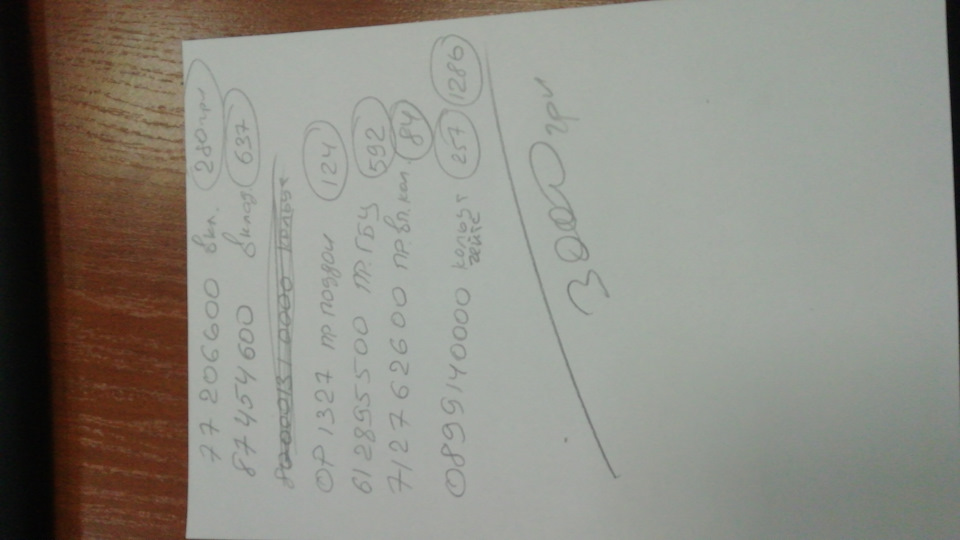 77206600 вкл. 280 грн
87454600 вклад. 637
ОР 1327 пр поддон 124
612895500 ПР. ГБЦ 592
712762600 пр. вп. кол. 84
0899140000 кольца 257 1286
3000 грн